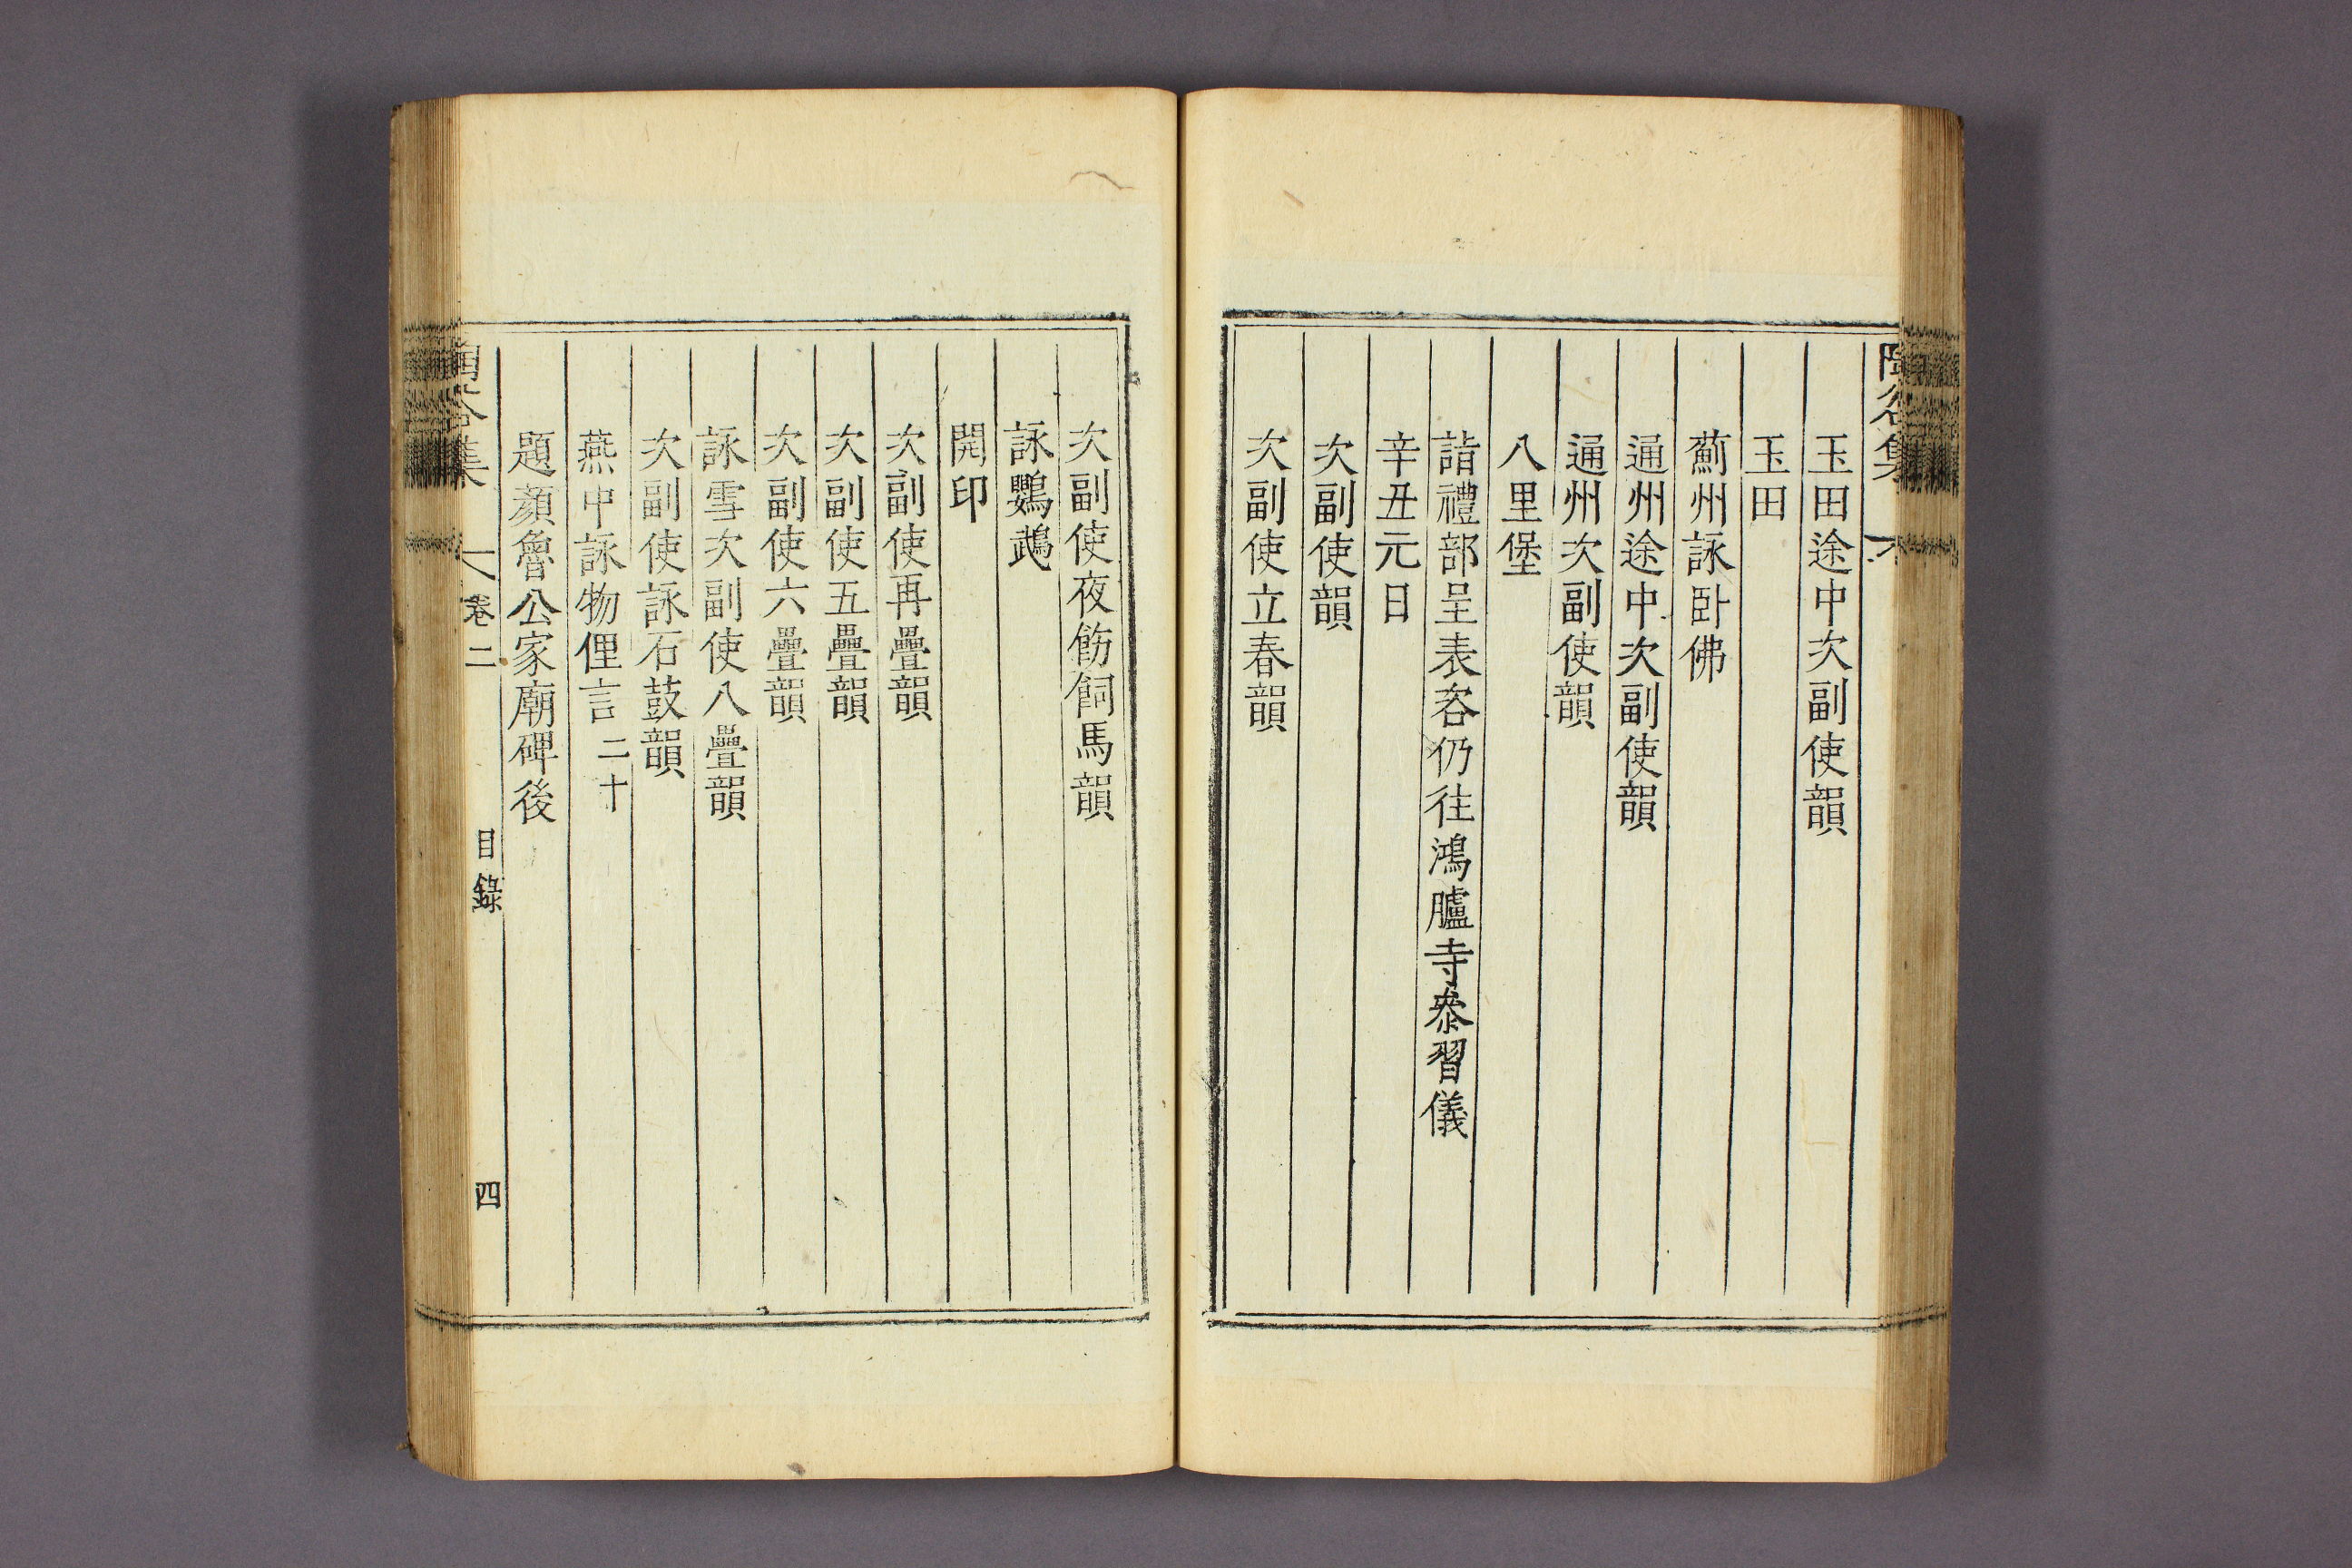 玉田途中次副使韻
玉田
薊州詠卧佛
通州途中次副使韻
通州次副使韻
八里堡
詣禮部呈表咨仍往鴻臚寺叅習儀
辛丑元日
次副使韻
次副使立春韻
次副使夜飭飼馬韻
詠鸚鵡
開印
次副使再疊韻
次副使五疊韻
次副使六疊韻
詠雪次副使八疊韻
次副使詠石鼓韻
燕中詠物俚言二十
題顏魯公家廟碑後
卷二 目錄 四